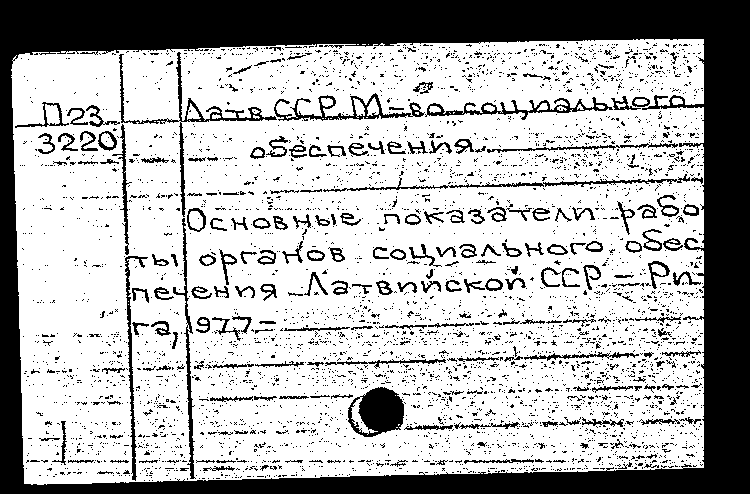 П23 Латв. ССР. М-во социального
3220 обеспечения.
Основные показатели рабо
ты органов социального обес
печения Латвийской ССР. – Ри-
га, 1977.–